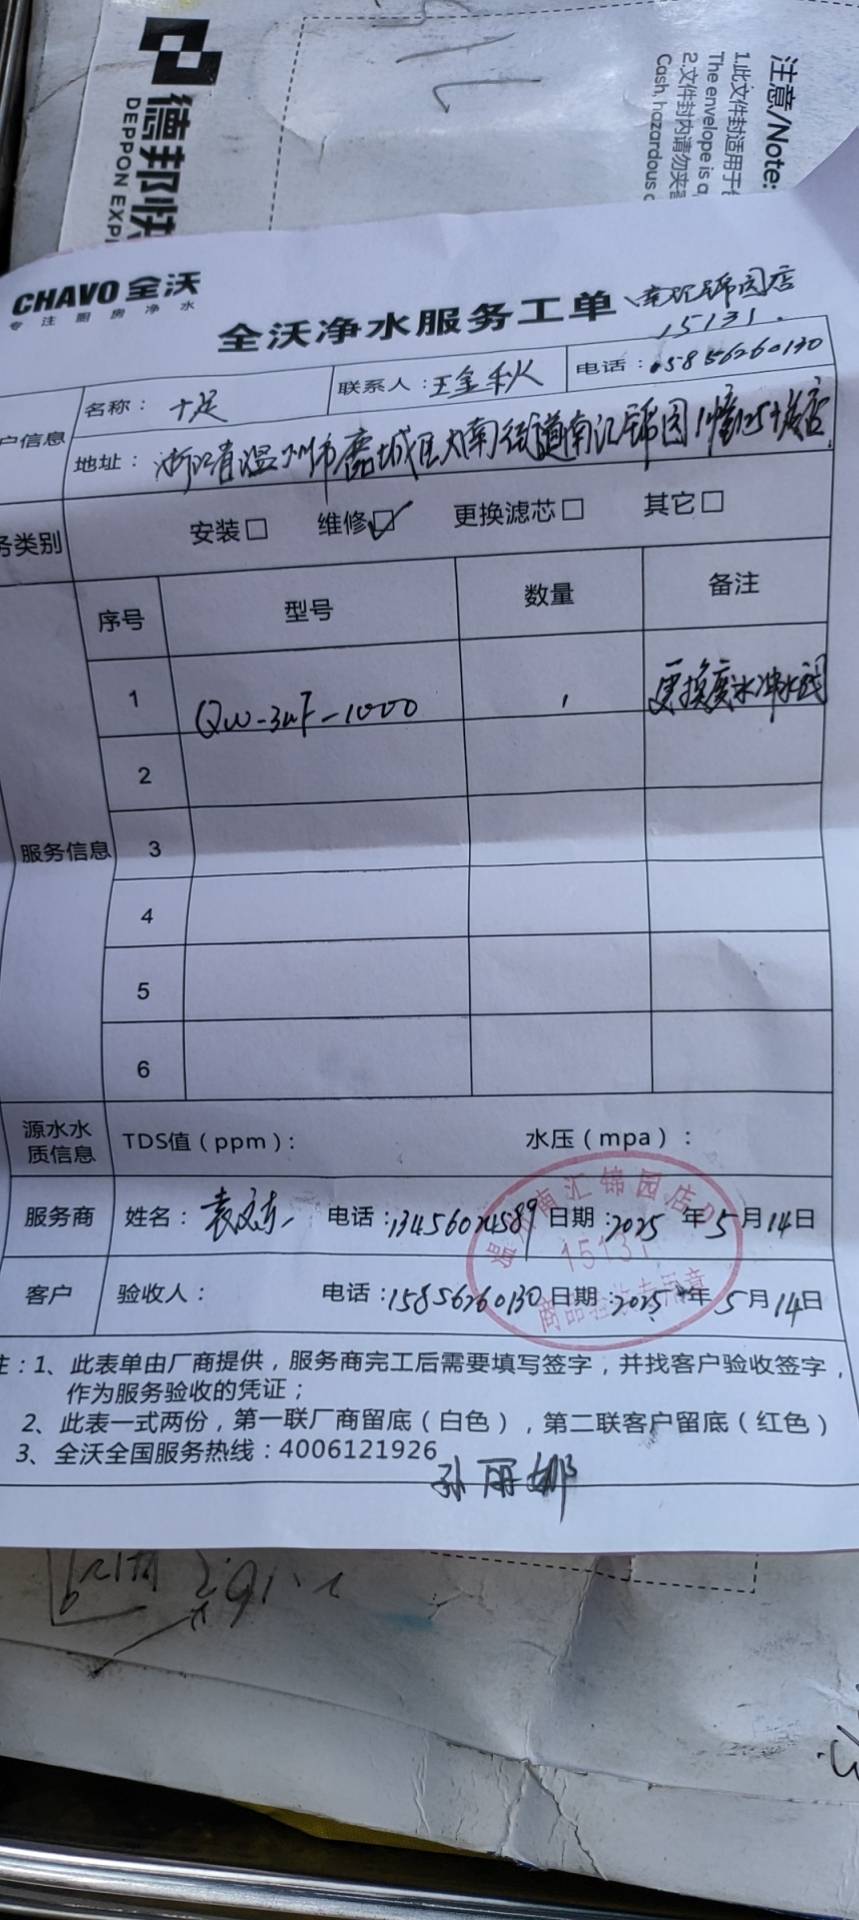 德邦快
DEPPON EXP
注意/Note:
1.此文件封适用于
The envelope is
2.文件封内请勿夹
Cash, hazardous
CHAVO 全沃
专注厨房净水
全沃净水服务工单
南汇锦园店
15131.
户信息
名称：十足
联系人：王金秋
电话：15856260130
地址：浙江省温州市鹿城区大南街道南汇锦园1幢125十足店
务类别
安装□ 维修☑ 更换滤芯□ 其它□
序号 型号 数量 备注
1 QW-3uF-1000 1 更换废水冲水阀
2
服务信息 3
4
5
6
源水水质信息 TDS值（ppm）： 水压（mpa）：
服务商 姓名：袁 电话：13456024589 日期：2025年5月14日
客户 验收人： 电话：15856260130 日期：2025年5月14日
温州南汇锦园店
15131
商品 专用章
注：1、此表单由厂商提供，服务商完工后需要填写签字，并找客户验收签字，
作为服务验收的凭证；
2、此表一式两份，第一联厂商留底（白色），第二联客户留底（红色）
3、全沃全国服务热线：4006121926
孙丽娜